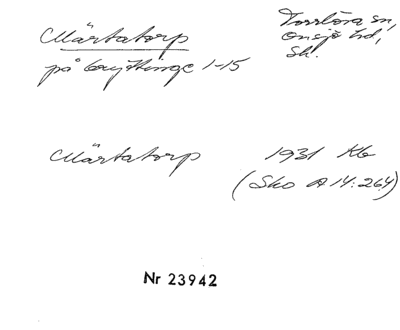 Mårtatorp
Torrlösa sn,
Onsjö hd,
Sk.
på Gryttinge 1-15
Mårtatorp
1931 Kb
(Sko A 14:264)
Nr 23942